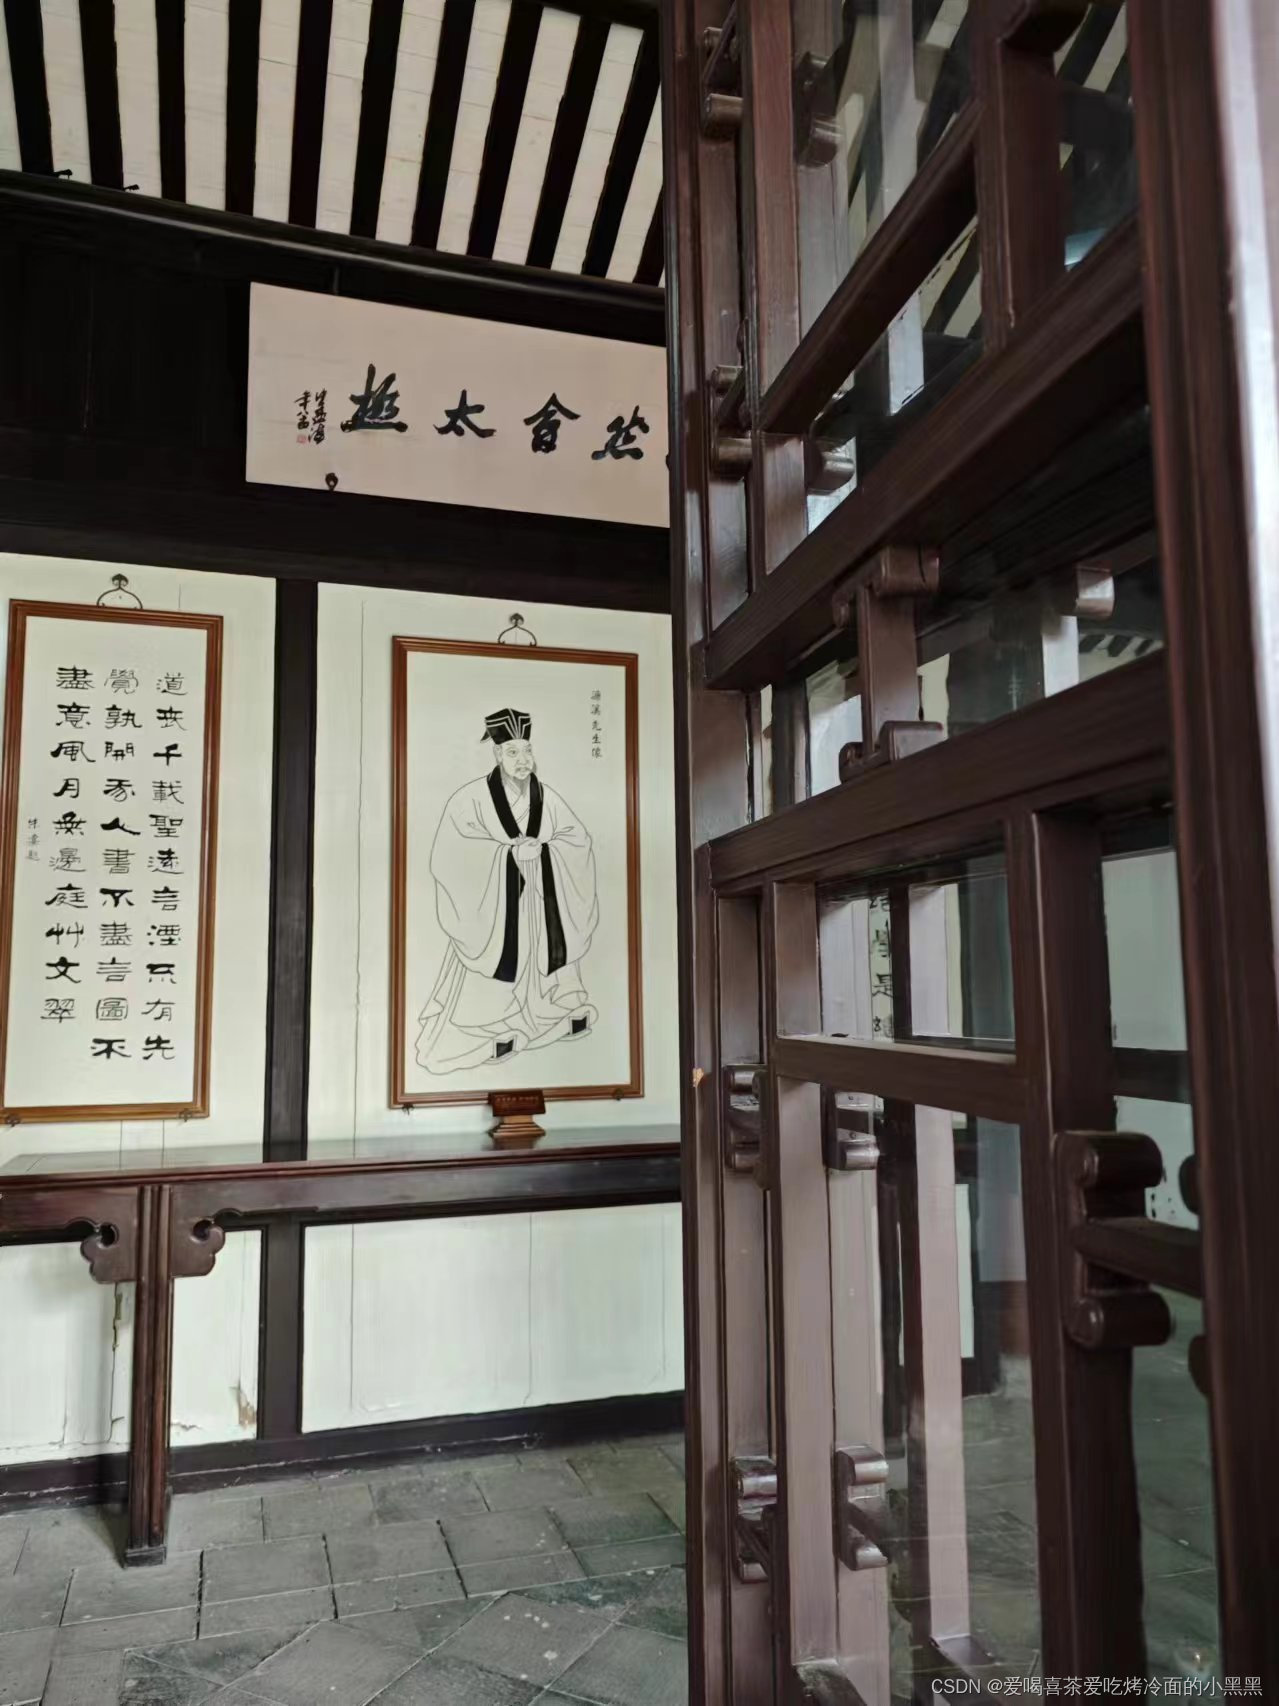 然會太極
道丧千載聖遠言湮不有先
覺孰開我人書不盡言圖不
盡意風月無邊庭艸文翠
朱熹題
濂溪先生像
CSDN @爱喝喜茶爱吃烤冷面的小黑黑